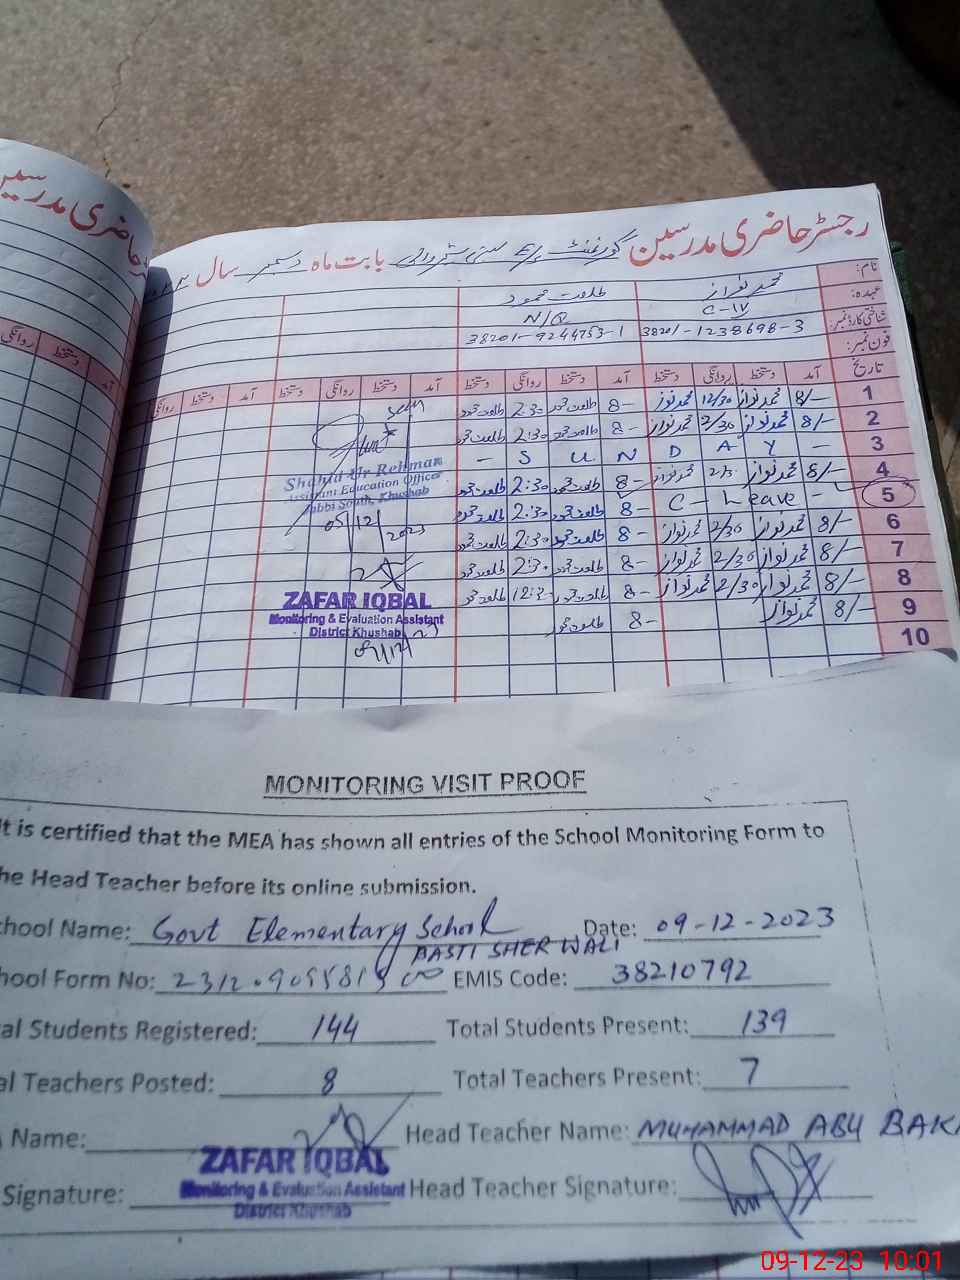 رجسٹر حاضری مدرسین گورنمنٹ بابت ماہ دسمبر سال
حاضری مدرسین
نام: محمد نواز طلعت محمود
عہدہ: C-IV N/Q
شناختی کارڈ نمبر: 38201-1238698-3 38201-9244753-1
فون نمبر:
تاریخ آمد دستخط روانگی دستخط آمد دستخط روانگی دستخط آمد دستخط روانگی دستخط آمد دستخط روانگی
1 8/- محمد نواز 12/30 محمد نواز 8- طلعت محمود 2:30 طلعت محمود
2 8/- محمد نواز 2/30 محمد نواز 8- طلعت محمود 2:30 طلعت محمود
3 - S U N D A Y -
4 8/- محمد نواز 2/30 محمد نواز 8- طلعت محمود 2:30 طلعت محمود
5 C - Leave - 8- طلعت محمود 2:30 طلعت محمود
6 8/- محمد نواز 2/30 محمد نواز 8- طلعت محمود 2:30 طلعت محمود
7 8/- محمد نواز 2/30 محمد نواز 8- طلعت محمود 2:30 طلعت محمود
8 8/- محمد نواز 2/30 محمد نواز 8- طلعت محمود 12:30 طلعت محمود
9 8/- محمد نواز 8- طلعت محمود
10
Seen
Shahid Ur Rehman
Assistant Education Officer
Jabbi South, Khushab
05/12/
2023
ZAFAR IQBAL
Monitoring & Evaluation Assistant
District Khushab
09/12/23
MONITORING VISIT PROOF
It is certified that the MEA has shown all entries of the School Monitoring Form to
he Head Teacher before its online submission.
chool Name: Govt Elementary School Date: 09-12-2023
BASTI SHER WALI
hool Form No: EMIS Code: 38210792
al Students Registered: 144 Total Students Present: 139
al Teachers Posted: 8 Total Teachers Present: 7
Name: Head Teacher Name: MUHAMMAD ABU BAK
ZAFAR IQBAL
Signature: Monitoring & Evaluation Assistant Head Teacher Signature:
District Khushab
09-12-23 10:01